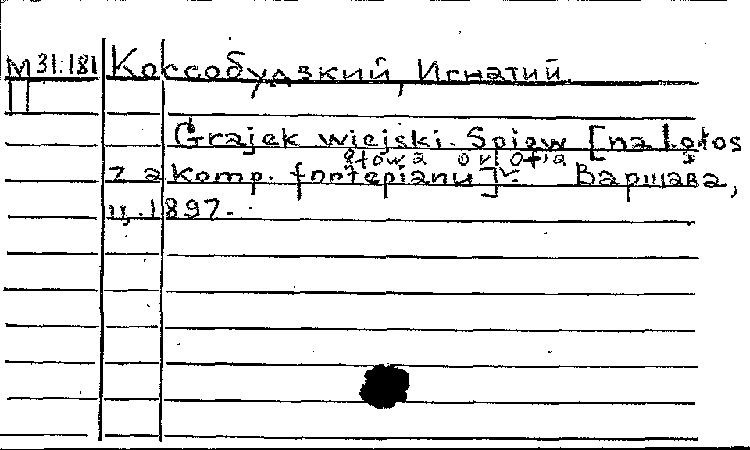 М 31.181 Коссобудзкий, Игнатий
П
Grajek wiejski. Śpiew [na 1 głos
z akomp. fortepianu]. Варшава,
ц. 1897.